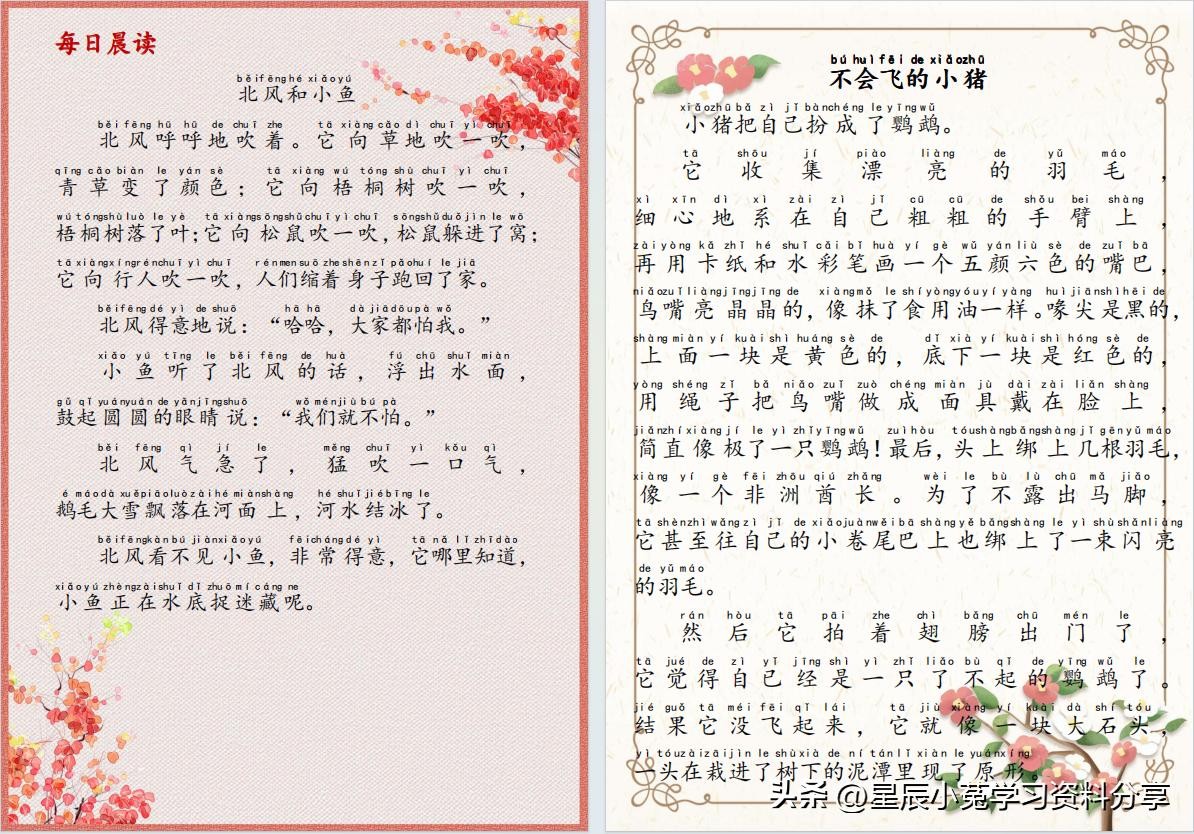 每日晨读
běi fēng hé xiǎo yú
北风和小鱼
běi fēng hū hū de chuī zhe tā xiàng cǎo dì chuī yì chuī
北风呼呼地吹着。它向草地吹一吹，
qīng cǎo biàn le yán sè tā xiàng wú tóng shù chuī yì chuī
青草变了颜色；它向梧桐树吹一吹，
wú tóng shù luò le yè tā xiàng sōng shǔ chuī yì chuī sōng shǔ duǒ jìn le wō
梧桐树落了叶；它向松鼠吹一吹，松鼠躲进了窝；
tā xiàng xíng rén chuī yì chuī rén men suō zhe shēn zǐ pǎo huí le jiā
它向行人吹一吹，人们缩着身子跑回了家。
běi fēng dé yì de shuō hā hā dà jiā dōu pà wǒ
北风得意地说：“哈哈，大家都怕我。”
xiǎo yú tīng le běi fēng de huà fú chū shuǐ miàn
小鱼听了北风的话，浮出水面，
gǔ qǐ yuán yuán de yǎn jīng shuō wǒ mén jiù bú pà
鼓起圆圆的眼睛说：“我们就不怕。”
běi fēng qì jí le měng chuī yì kǒu qì
北风气急了，猛吹一口气，
é máo dà xuě piāo luò zài hé miàn shàng hé shuǐ jié bīng le
鹅毛大雪飘落在河面上，河水结冰了。
běi fēng kàn bú jiàn xiǎo yú fēi cháng dé yì tā nǎ lǐ zhī dào
北风看不见小鱼，非常得意，它哪里知道，
xiǎo yú zhèng zài shuǐ dǐ zhuō mí cáng ne
小鱼正在水底捉迷藏呢。
bú huì fēi de xiǎo zhū
不会飞的小猪
xiǎo zhū bǎ zì jǐ bàn chéng le yīng wǔ
小猪把自己扮成了鹦鹉。
tā shōu jí piào liàng de yǔ máo
它收集漂亮的羽毛，
xì xīn dì xì zài zì jǐ cū cū de shǒu bei shàng
细心地系在自己粗粗的手臂上，
zài yòng kǎ zhǐ hé shuǐ cǎi bǐ huà yí gè wǔ yán liù sè de zuǐ bā
再用卡纸和水彩笔画一个五颜六色的嘴巴，
niǎo zuǐ liàng jīng jīng de xiàng mǒ le shí yòng yóu yí yàng huì jiān shì hēi de
鸟嘴亮晶晶的，像抹了食用油一样。喙尖是黑的，
shàng miàn yí kuài shì huáng sè de dǐ xià yí kuài shì hóng sè de
上面一块是黄色的，底下一块是红色的，
yòng shéng zǐ bǎ niǎo zuǐ zuò chéng miàn jù dài zài liǎn shàng
用绳子把鸟嘴做成面具戴在脸上，
jiǎn zhí xiàng jí le yì zhī yīng wǔ zuì hòu tóu shàng bǎng shàng jǐ gēn yǔ máo
简直像极了一只鹦鹉！最后，头上绑上几根羽毛，
xiàng yí gè fēi zhōu qiú zhǎng wèi le bù lù chū mǎ jiǎo
像一个非洲酋长。为了不露出马脚，
tā shèn zhì wǎng zì jǐ de xiǎo juàn wěi bā shàng yě bǎng shàng le yí shù shǎn liàng
它甚至往自己的小卷尾巴上也绑上了一束闪亮
de yǔ máo
的羽毛。
rán hòu tā pāi zhe chì bǎng chū mén le
然后它拍着翅膀出门了，
tā jué de zì yǐ jīng shì yì zhī liǎo bù qǐ de yīng wǔ le
它觉得自己经是一只了不起的鹦鹉了。
jié guǒ tā méi fēi qǐ lái tā jiù xiàng yí kuài dà shí tóu
结果它没飞起来，它就像一块大石头，
yì tóu zāi zāi jìn le shù xià de ní tán lǐ xiàn le yuán xíng
一头在栽进了树下的泥潭里现了原形。
头条 @星辰小菟学习资料分享